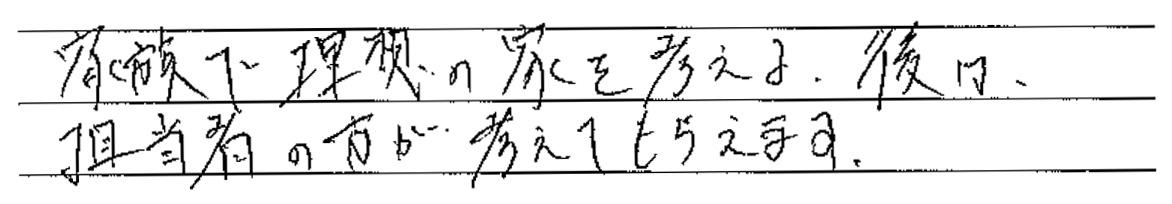 家族で理想の家を考える。後は、
担当者の方が考えてもらえます。